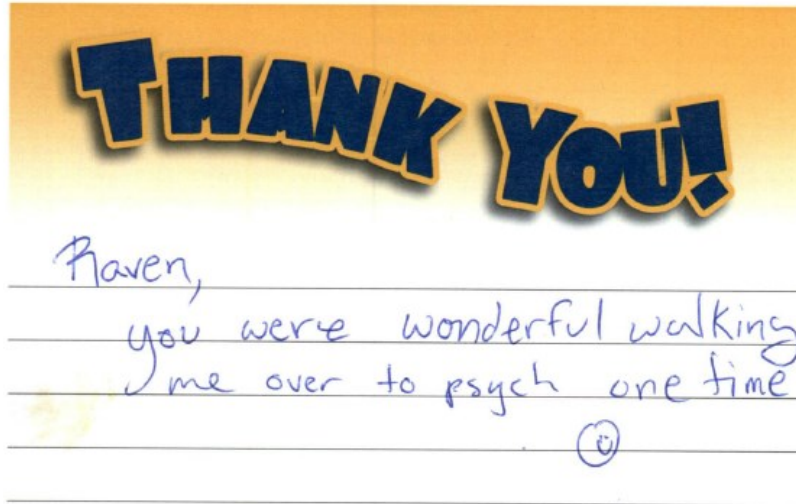 THANK YOU!
Raven,
you were wonderful walking
me over to psych one time